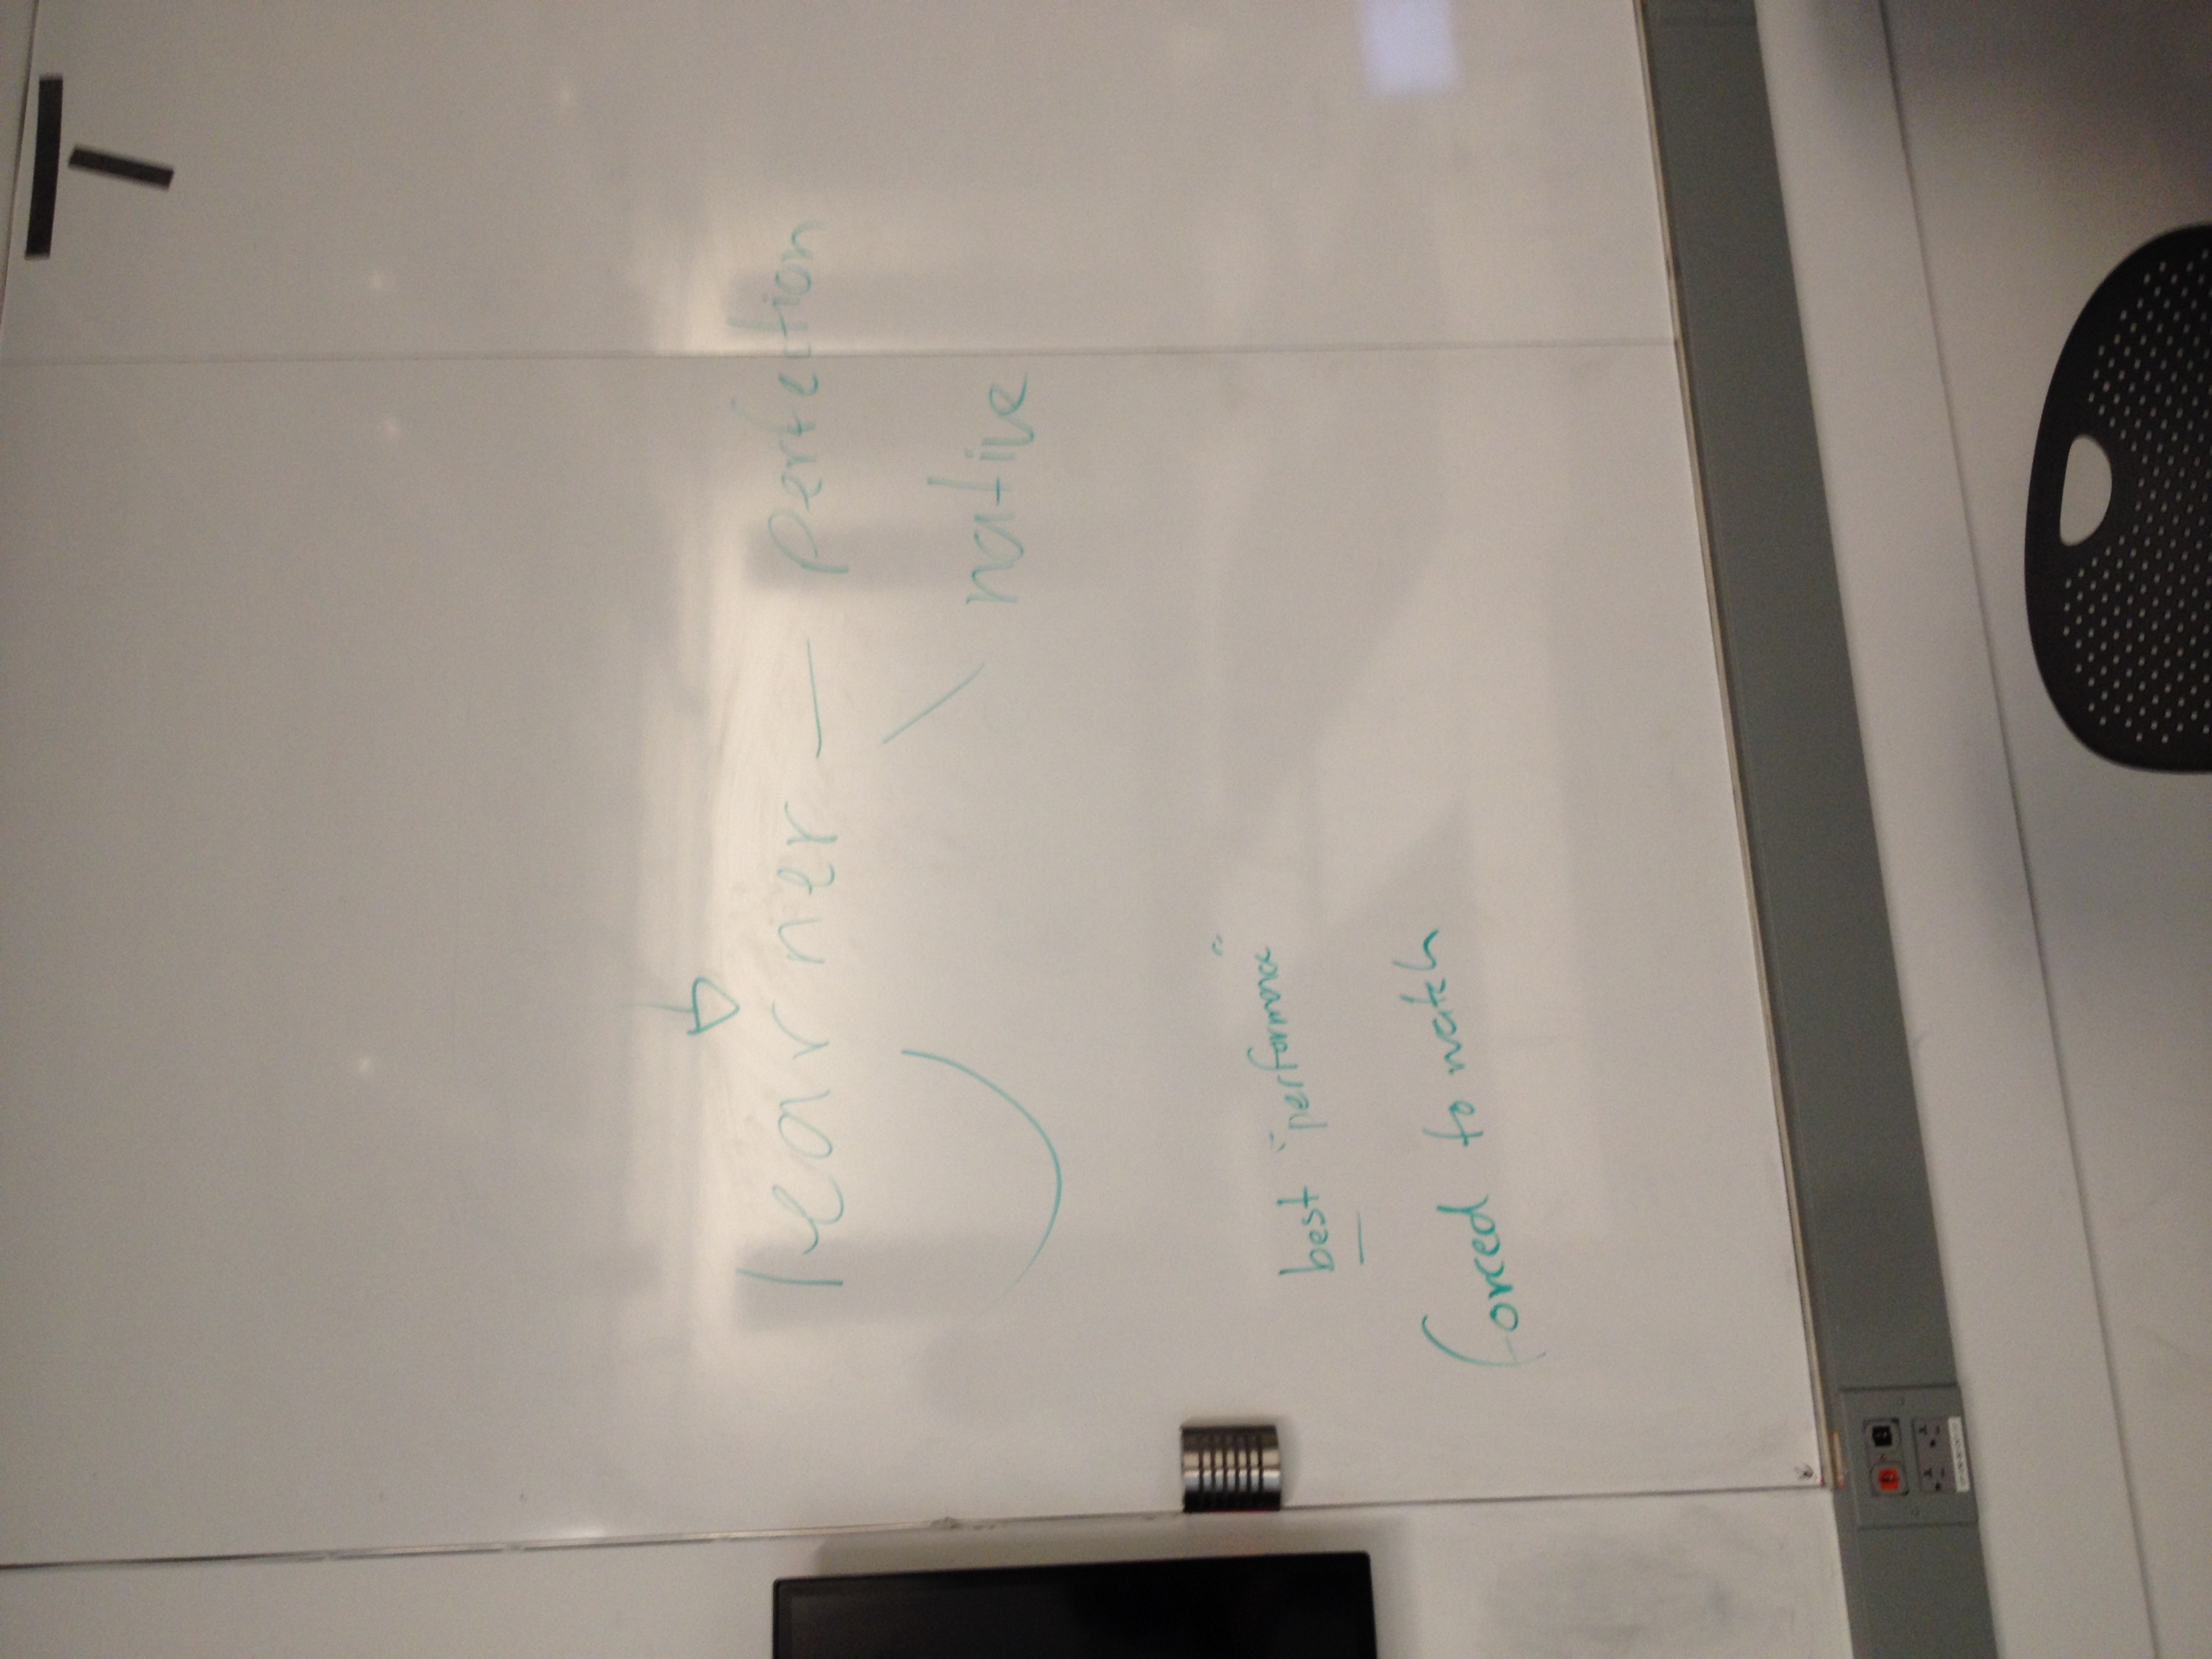 learner — perfection
native
best "performance"
forced to watch